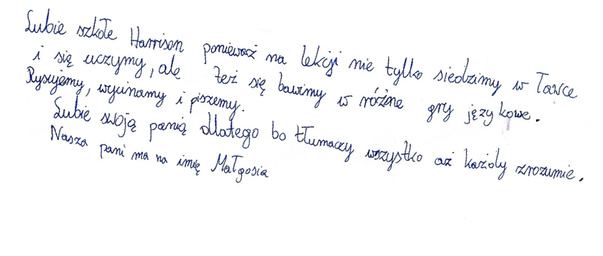 Lubie szkołe Harrison ponieważ na lekcji nie tylko siedzimy w ławce
i się uczymy, ale też się bawimy w różne gry językowe.
Rysujemy, wycinamy i piszemy.
Lubie swoją panią dlatego bo tłumaczy wszystko aż każdy zrozumie.
Nasza pani ma na imię Małgosia